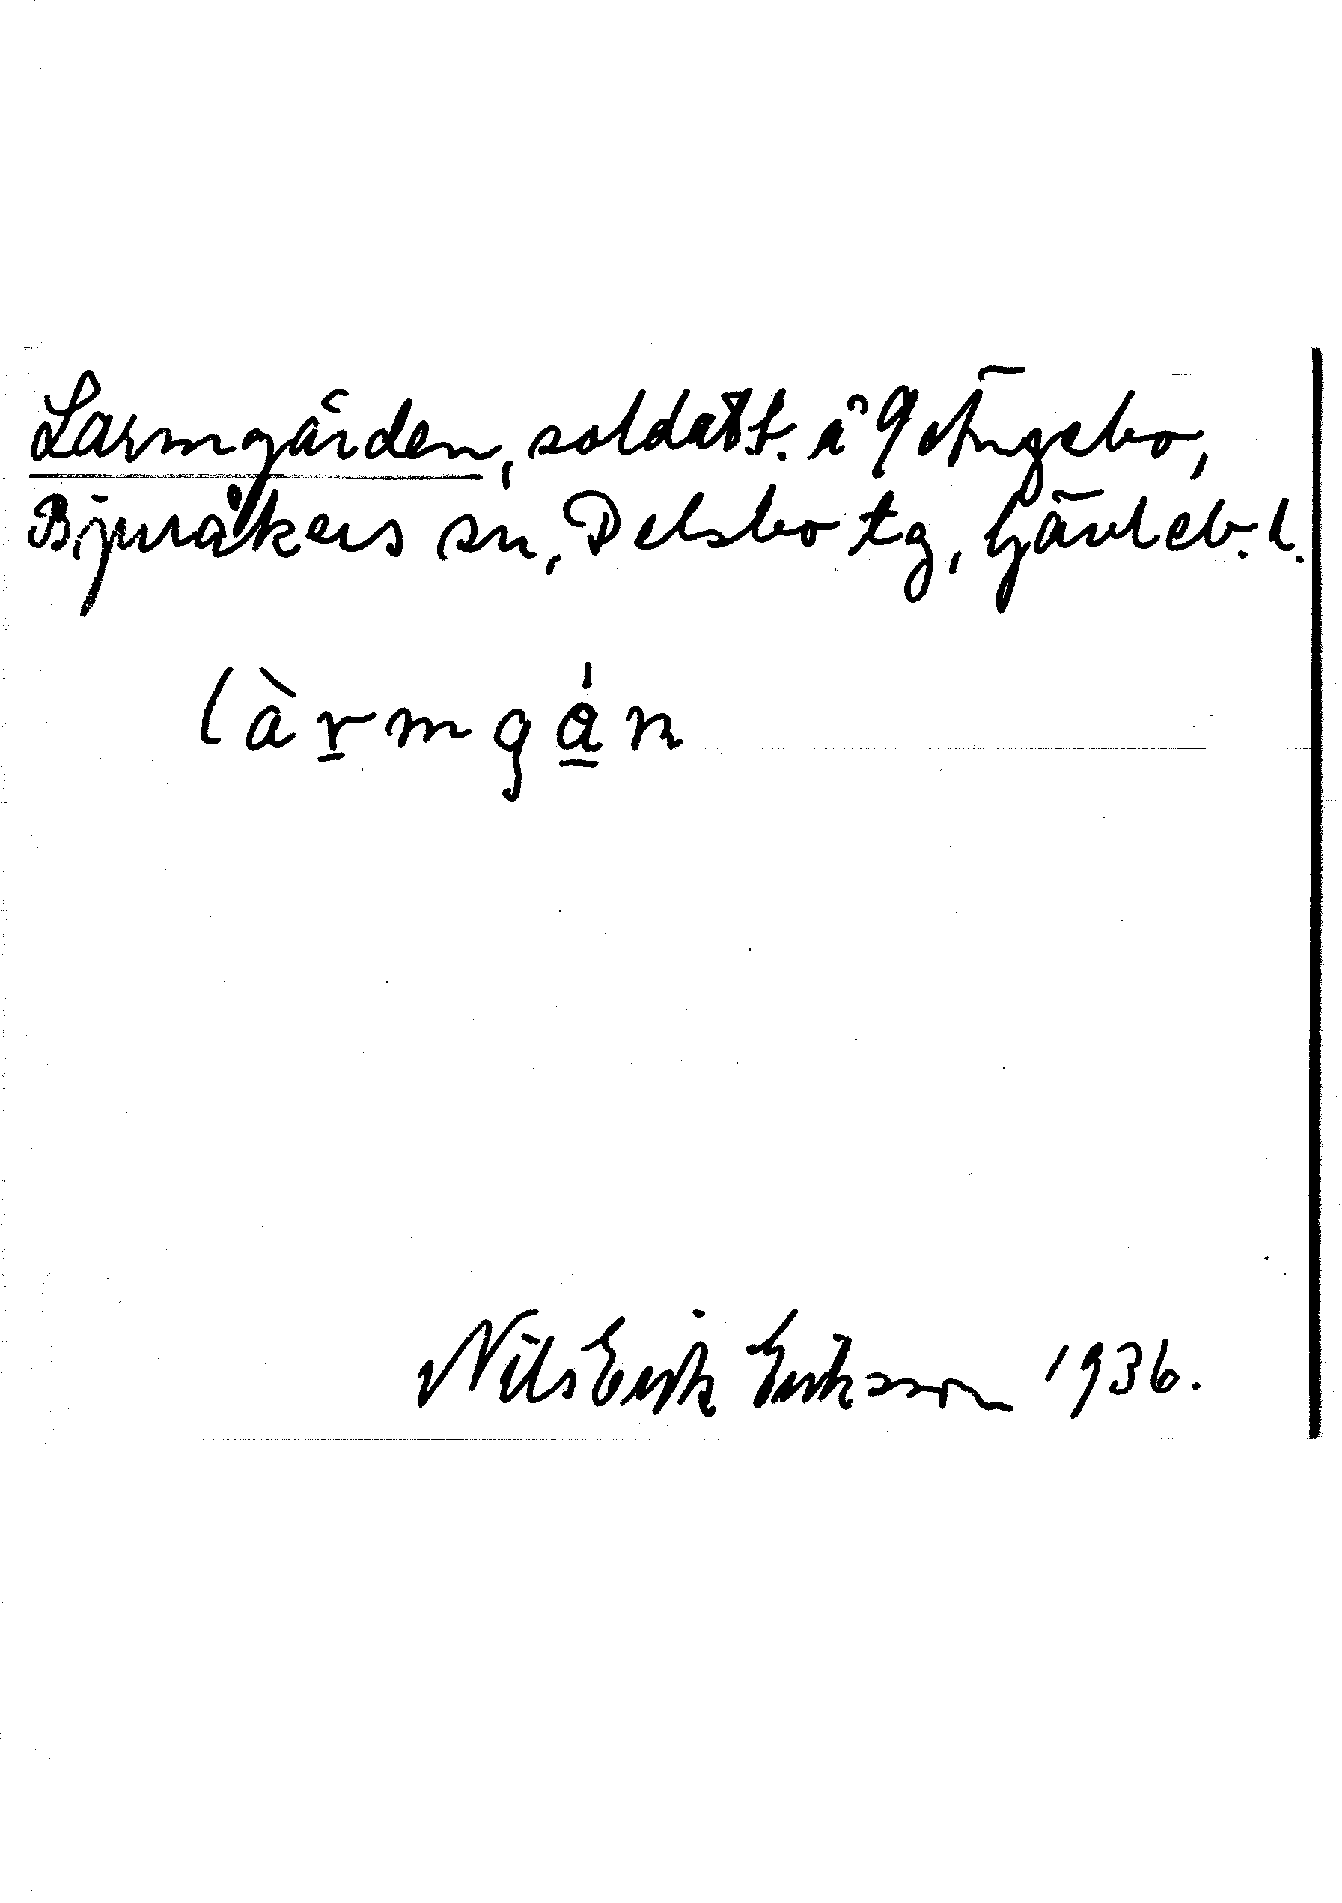 Larmgården, soldatt. å 9 Ängebo,
Bjuråkers sn, Delsbo tg, Gävleb. l.
làrmgán
Nils Erik Eriksson 1936.